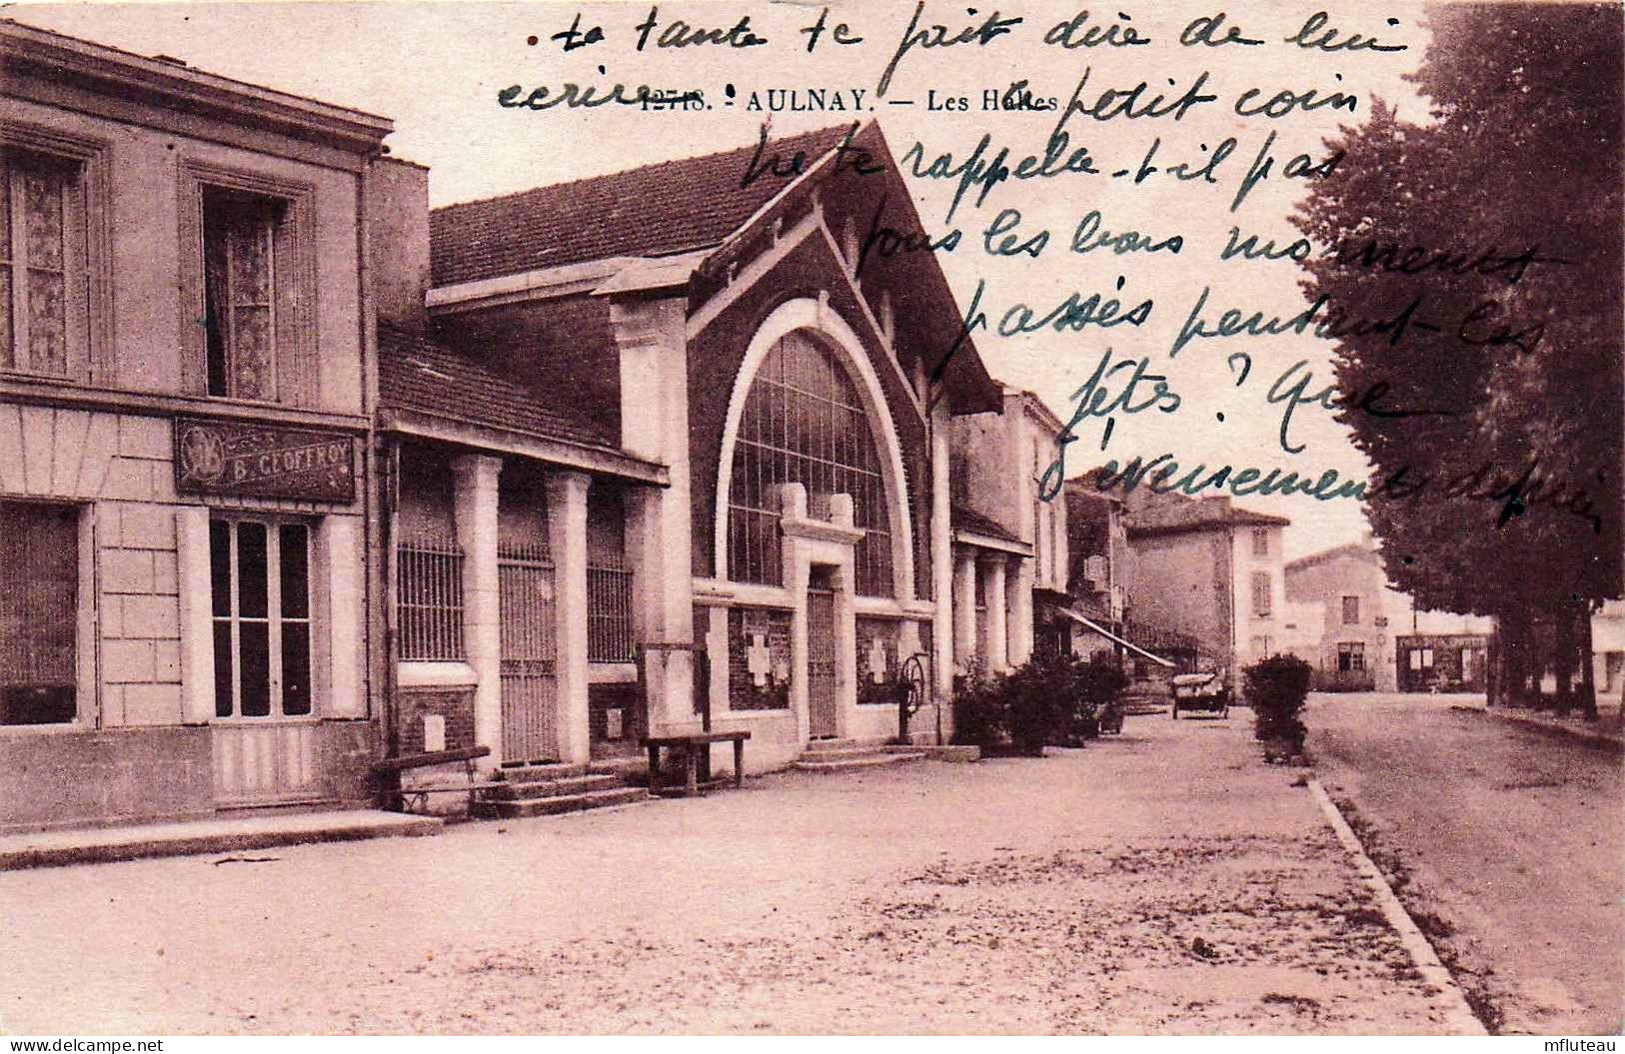 ta tante te fait dire de lui
ecrire.
12718. - AULNAY. — Les Halles
ce petit coin
ne te rappelle-t-il pas
tous les bons moments
passés pendant les
fêtes ? Que
d'évenements depuis
B. GEOFFROY
delcampe.net
mfluteau